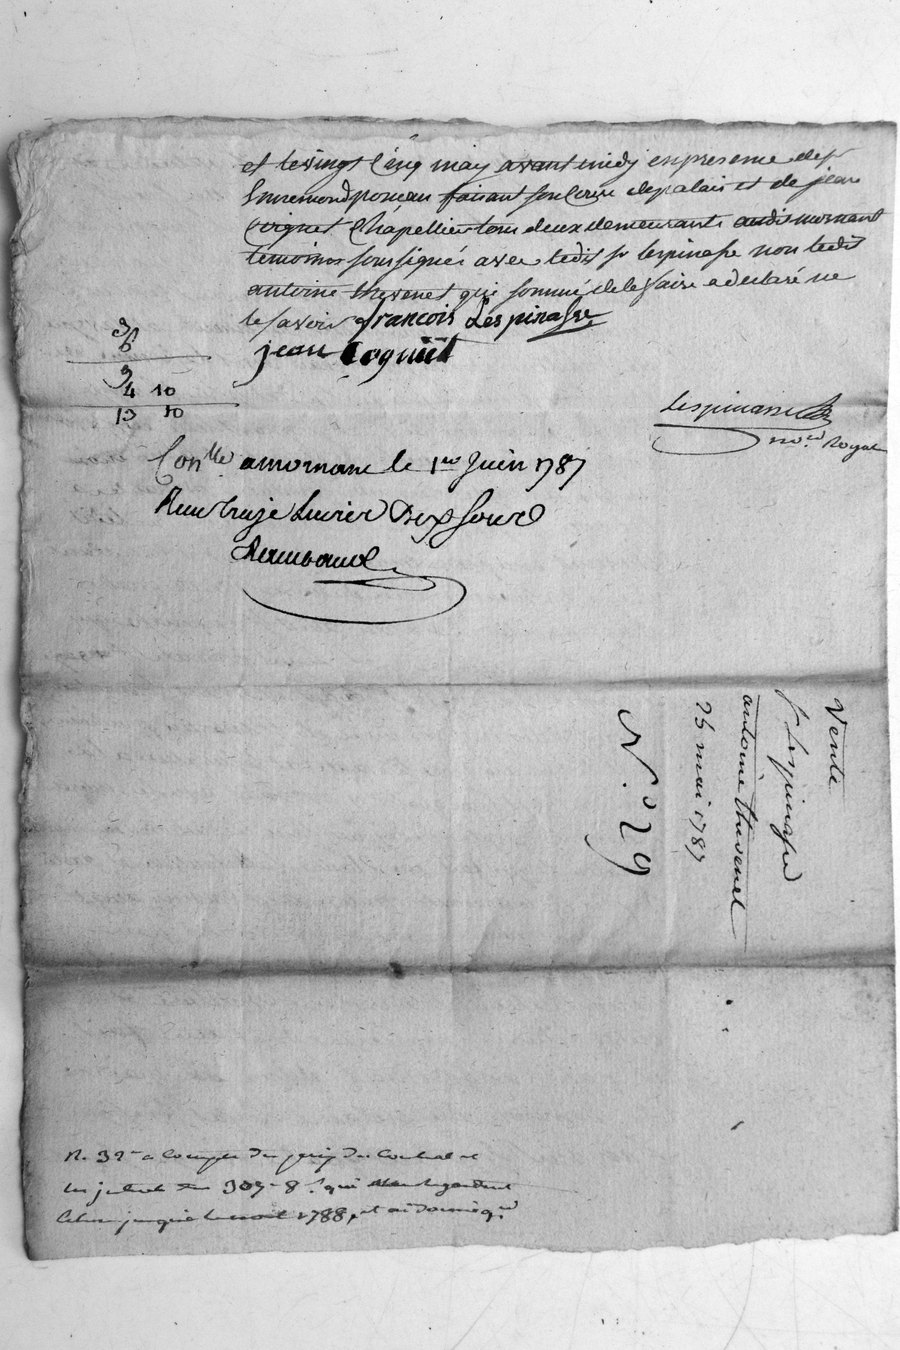 et le vingt cinq may avant midy en presence de sr
ponceau faisant son cours de palais et de jean
Coignet Chapellier tous deux demeurants audit mornant
temoins soussignés avec ledit sr lespinasse non ledit
antoine thevenet qui sommé de le faire a declaré ne
le savoir françois Lespinasse
jean Cognet
3
6
9
4 10
13 10
Lespinasse
no.re Royal
Con.lle a mornant le 1er Juin 1787
Reçu treize Livres Dix sous
Raimbaud
Vente
sr Lespinasse
antoine thevenet
25 mai 1787
N.o 29
R. 32 a Compte du prix du Contrat
309 - 8 s qui
jusqu'à 1788, et ai Donné q.ce